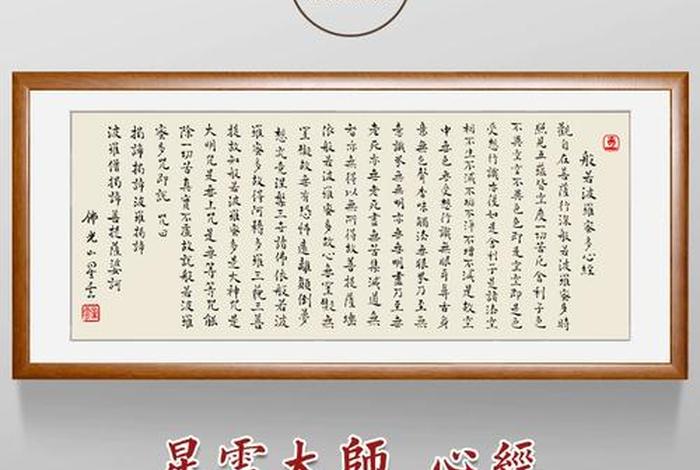 般若波羅蜜多心經
觀自在菩薩行深般若波羅蜜多時
照見五蘊皆空度一切苦厄舍利子色
不異空空不異色色即是空空即是色
受想行識亦復如是舍利子是諸法空
相不生不滅不垢不淨不增不減是故空
中無色無受想行識無眼耳鼻舌身
意無色聲香味觸法無眼界乃至無
意識界無無明亦無無明盡乃至無
老死亦無老死盡無苦集滅道無
智亦無得以無所得故菩提薩埵
依般若波羅蜜多故心無罣礙無
罣礙故無有恐怖遠離顛倒夢
想究竟涅槃三世諸佛依般若波
羅蜜多故得阿耨多羅三藐三菩
提故知般若波羅蜜多是大神咒是
大明咒是無上咒是無等等咒能
除一切苦真實不虛故說般若波羅
蜜多咒即說咒曰
揭諦揭諦波羅揭諦
波羅僧揭諦菩提薩婆訶
佛光山星雲
星雲大師 心經